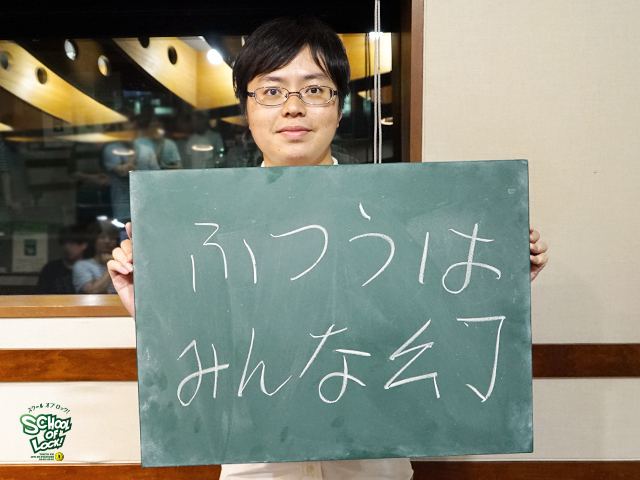 ふつうは
みんな幻
スクール オブ ロック!
SCHOOL
OF
LOCK!